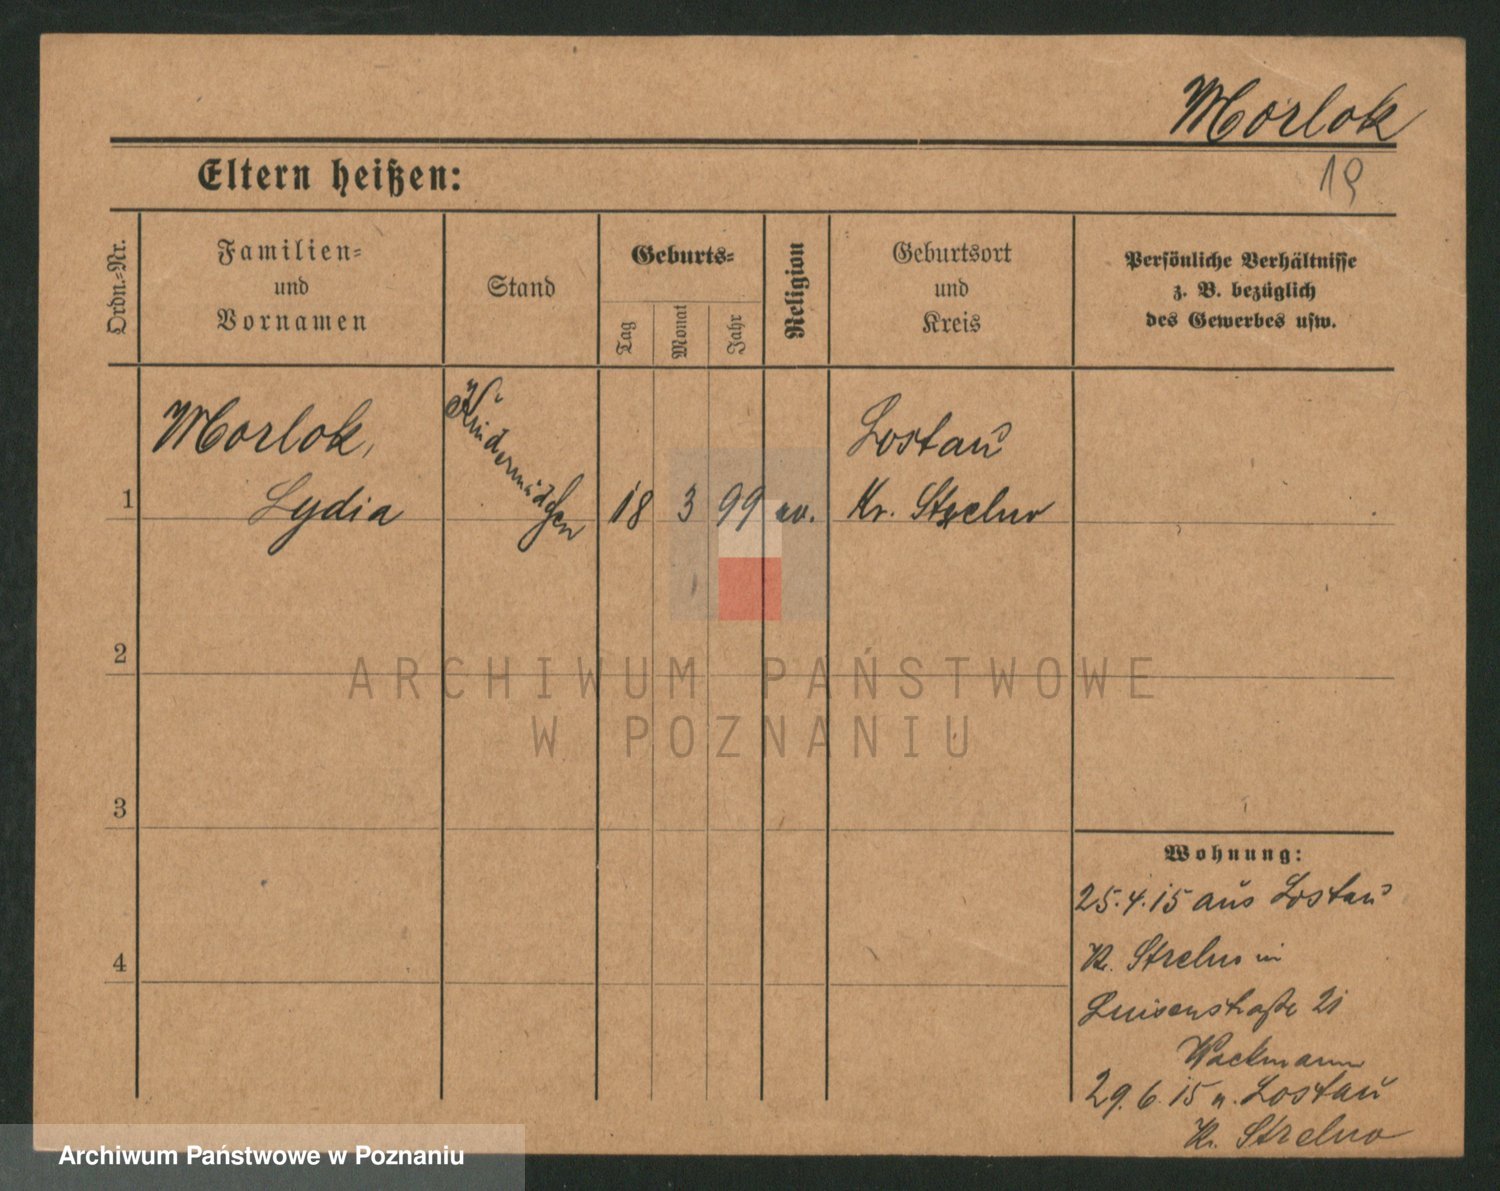 Morlok
19
Eltern heißen:
Ordn.-Nr.
Familien-
und
Vornamen
Stand
Geburts-
Tag
Monat
Jahr
Religion
Geburtsort
und
Kreis
Persönliche Verhältnisse
z. B. bezüglich
des Gewerbes usw.
1
Morlok,
Lydia
Kindermädchen
18 3 99 ev.
Lostau
Kr. Strelno
2
3
4
Wohnung:
25.4.15 aus Lostau
Kr. Strelno in
Luisenstraße 21
Wackmann
29.6.15 n. Lostau
Kr. Strelno
ARCHIWUM PAŃSTWOWE
W POZNANIU
Archiwum Państwowe w Poznaniu